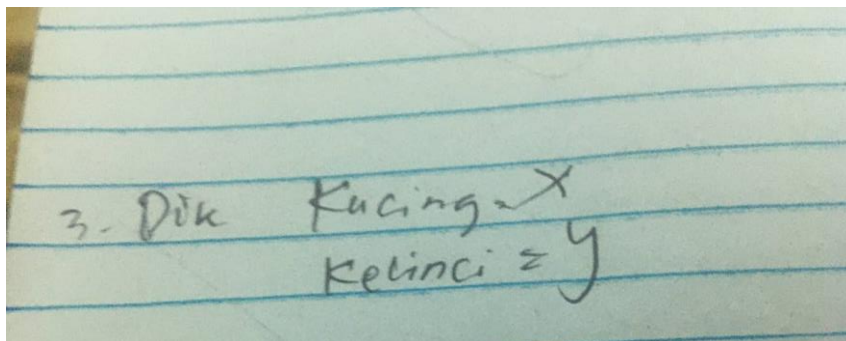 3. Dik Kucing = X
Kelinci = y